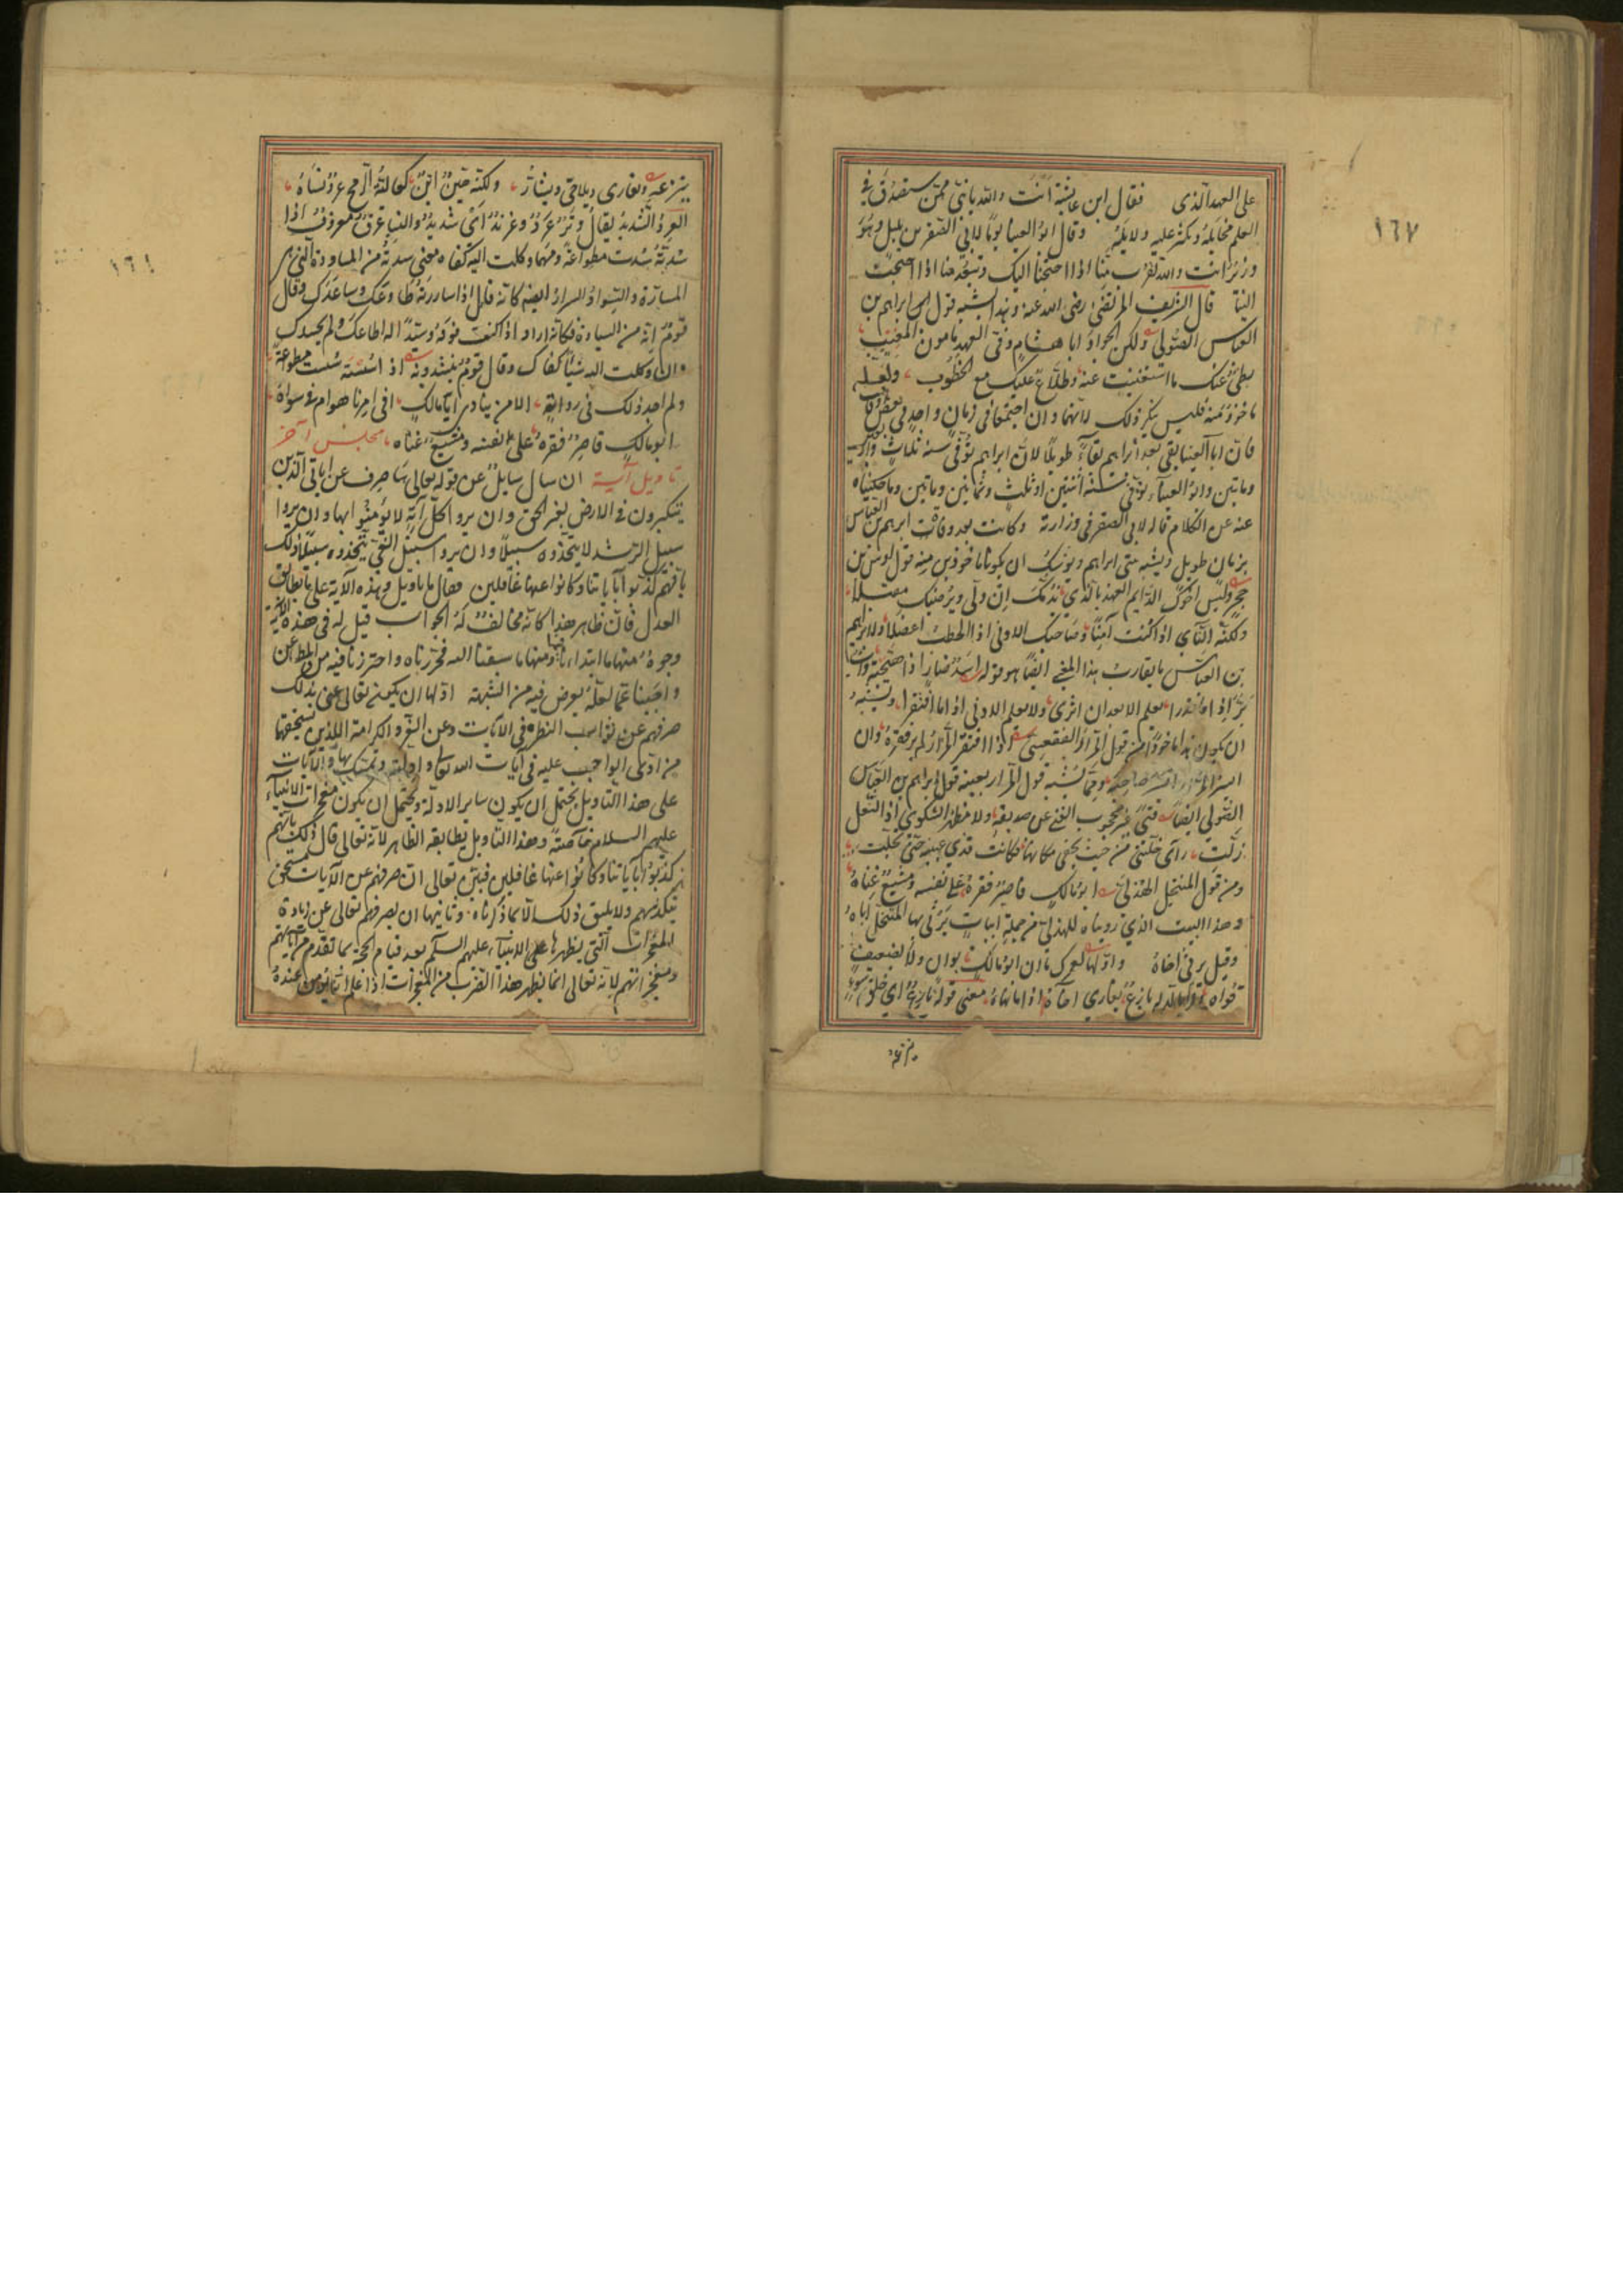 ١٦٧
على العهد الذي فقال ابن عايشة انت والله يا بني ممن سيصدق في
العلم مخايله ويكثر عليه ولا يمله وقال ابو العينا يوما لابي الصقر بن بلبل وهو
وزير انت والله تقرب منا اذا احتجنا اليك وتبعد منا اذا احتجت
الينا قال الشريف المرتضى رضي الله عنه وهذا يشبه قول ابراهيم بن
العباس الصولي ولكن الجواد ابا هشام وفي العهد مامون المغيب
بطي عنك ما استغنيت عنه وطلاع عليك مع الخطوب ولعله
ماخوذ منه فليس ينكر ذلك لانهما وان اجتمعا في زمان واحد
فان ابا العينا بقي بعد ابراهيم بقاء طويلا لان ابراهيم توفي سنة ثلاث
وماتين وابو العيناء توفي سنة اثنتين او ثلث وثمانين وماتين وما حكيناه
عنه من الكلام قاله لابي الصقر في وزارته وكانت بعد وفات ابرهيم بن العباس
بزمان طويل ويشبه بيتي ابراهيم ويوشك ان يكونا ماخوذين منه قول اوس بن
حجر وليس اخوك الدايم العهد بالذي يذمك ان ولى ويرضيك مقبلا
ولكنه النائي اذا كنت آمنا وصاحبك الادنى اذا الخطب اعضلا ولابراهيم
بن العباس ما يقارب هذا المعنى ايضا هو قوله اسد ضار اذا هيجته واب
بر اذا ما قدرا يعلم الابعد ان اثرى ولا يعلم الادنى اذا ما افتقرا ويشبه
ان يكون هذا ماخوذا من قول المرار الفقعسي اذا افتقر المرار لم ير فقره وان
ايسر المرار ايسر صاحبه ومما يشبه قول المرار بعينه قول ابراهيم بن العباس
الصولي ايضا فتى غير محجوب الغنى عن صديقه ولا مظهر الشكوى اذ النعل
زلت راى خلتي من حيث يخفى مكانها فكانت قذى عينيه حتى تجلت
ومن قول المتنخل الهذلي ابو مالك قاصر فقره على نفسه ومشيع غناه
وهذا البيت الذي رويناه للهذلي من جملة ابيات يرثي بها المتنخل اباه
وقيل يرثي اخاه واولها لعمرك ما ان ابو مالك بوان ولا بضعيف
قواه ولا بالد له نازع يغاري اخاه اذا ما نهاه معنى قوله نازع اي خلق سوء
ينزعه
ينزعه ويغاري ويلاحي ويشار ولكنه هين لين كعالية الرمح عرد نساه
العرد الشديد يقال وتر عرد وعرند اي شديد والنسا عرق معروف اذا
سدته سدت مطواعة ومهما وكلت اليه كفاه معنى سدته من المساودة التي هي
المسارة والسواد السرار ايضا كانه قال اذا ساررته طاوعك وساعدك وقال
قوم انه من السيادة فكانه اراد اذا كنت فوقه وسيدا له اطاعك ولم يحسدك
وان وكلت اليه شيئا كفاك وقال قوم ينشدونه اذ اسسته سست مطواعة
ولم اجد ذلك في رواية الا من ينادي ابا مالك افي امرنا هو ام في سواه
ابو مالك قاصر فقره على نفسه ومشيع غناه مجلس آخر
تاويل آية ان سال سايل عن قوله تعالى ساصرف عن اياتي الذين
يتكبرون في الارض بغير الحق وان يروا كل آية لا يؤمنوا بها وان يروا
سبيل الرشد لا يتخذوه سبيلا وان يروا سبيل الغي يتخذوه سبيلا ذلك
بانهم كذبوا باياتنا وكانوا عنها غافلين فقال ما تاويل هذه الاية على ما يطابق
العدل فان ظاهرها كانه مخالف له الجواب قيل له في هذه الاية
وجوه منها ما ابتداناه ومنها ما سبقنا اليه فحررناه واحترزنا فيه من المطاعن
واجبنا عما لعله يعرض فيه من الشبهة اولها ان يكون تعالى عنى بذلك
صرفهم عن ثواب النظر في الايات وعن العز والكرامة اللذين يستحقها
من ادى الواجب عليه في آيات الله تعالى وادلته وتمسك بها والايات
على هذا التاويل يحتمل ان يكون ساير الادلة ويحتمل ان يكون معجزات الانبياء
عليهم السلام خاصة وهذا التاويل يطابقه الظاهر لانه تعالى قال ذلك بانهم
كذبوا باياتنا وكانوا عنها غافلين فبين تعالى ان صرفهم عن الايات مستحق
بتكذيبهم ولا يليق ذلك الا بما ذكرناه وثانيها ان يصرفهم تعالى عن زيادة
المعجزات التي يظهرها على الانبياء عليهم السلام بعد قيام الحجة بما تقدم من آياتهم
ومعجزاتهم لانه تعالى انما يظهر هذا الضرب من المعجزات اذا علم انه يؤمن عنده